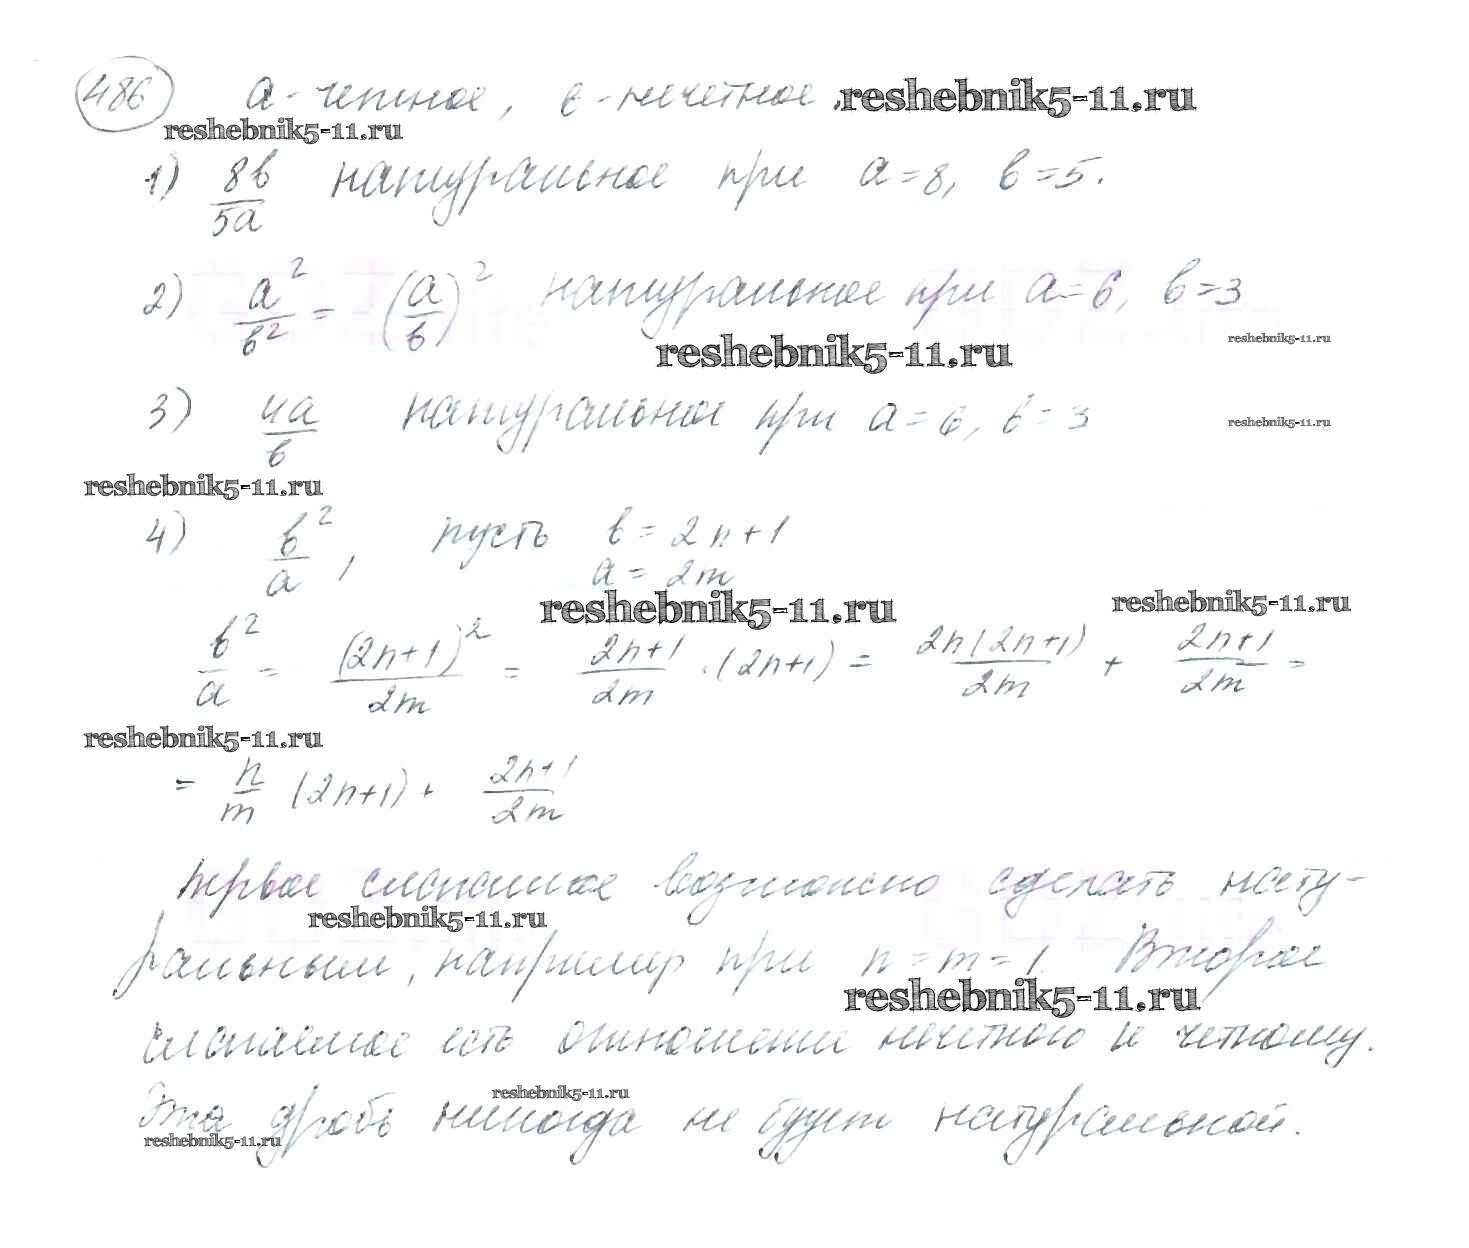 486 а - четное, в - нечетное. reshebnik5-11.ru
reshebnik5-11.ru
1) 8в/5а натуральное при а = 8, в = 5.
2) а²/в² = (а/в)² натуральное при а = 6, в = 3
reshebnik5-11.ru reshebnik5-11.ru
3) 4а/в натуральное при а = 6, в = 3 reshebnik5-11.ru
reshebnik5-11.ru
4) в²/а, пусть в = 2n+1
а = 2m
reshebnik5-11.ru reshebnik5-11.ru
в²/а = (2n+1)²/2m = 2n+1/2m · (2n+1) = 2n(2n+1)/2m + 2n+1/2m =
reshebnik5-11.ru
= n/m (2n+1) + 2n+1/2m
первое слагаемое возможно сделать нату-
reshebnik5-11.ru
ральным, например при n = m = 1. Второе
reshebnik5-11.ru
слагаемое есть отношение нечетного к четному.
reshebnik5-11.ru
Эта дробь никогда не будет натуральной.
reshebnik5-11.ru